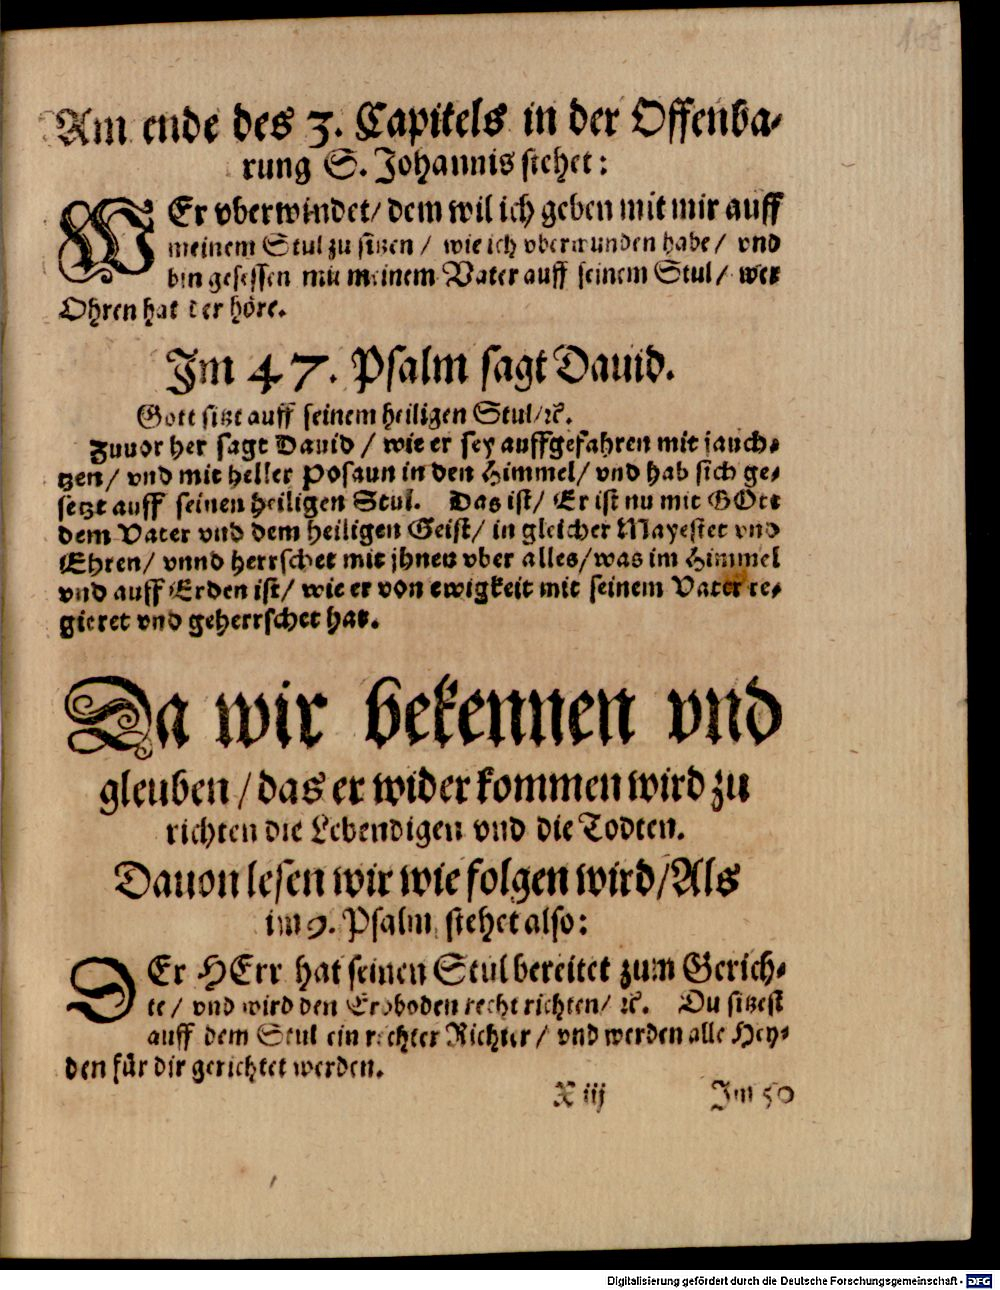 Am ende des 3. Capitels in der Offenba-
rung S. Johannis stehet:
WEr vberwindet/ dem wil ich geben mit mir auff
meinem Stul zu sitzen / wie ich vberwunden habe / vnd
bin gesessen mit meinem Vater auff seinem Stul / wer
Ohren hat der höre.
Im 47. Psalm sagt Dauid.
Gott sitzt auff seinem heiligen Stul/ ꝛc.
Zuuor her sagt Dauid / wie er sey auffgefahren mit jauch-
tzen / vnd mit heller Posaun in den Himmel / vnd hab sich ge-
setzt auff seinen heiligen Stul. Das ist / Er ist nu mit GOtt
dem Vater vnd dem heiligen Geist / in gleicher Mayestet vnd
Ehren / vnnd herrschet mit jhnen vber alles / was im Himmel
vnd auff Erden ist / wie er von ewigkeit mit seinem Vater re-
gieret vnd geherrschet hat.
Da wir bekennen vnd
gleuben / das er wider kommen wird zu
richten die Lebendigen vnd die Todten.
Dauon lesen wir wie folgen wird / Als
im 9. Psalm stehet also:
DEr HErr hat seinen Stul bereitet zum Gerich-
te / vnd wird den Erdboden recht richten / ꝛc. Du sitzest
auff dem Stul ein rechter Richter / vnd werden alle Hey-
den für dir gerichtet werden.
X iij Im 50
Digitalisierung gefördert durch die Deutsche Forschungsgemeinschaft - DFG